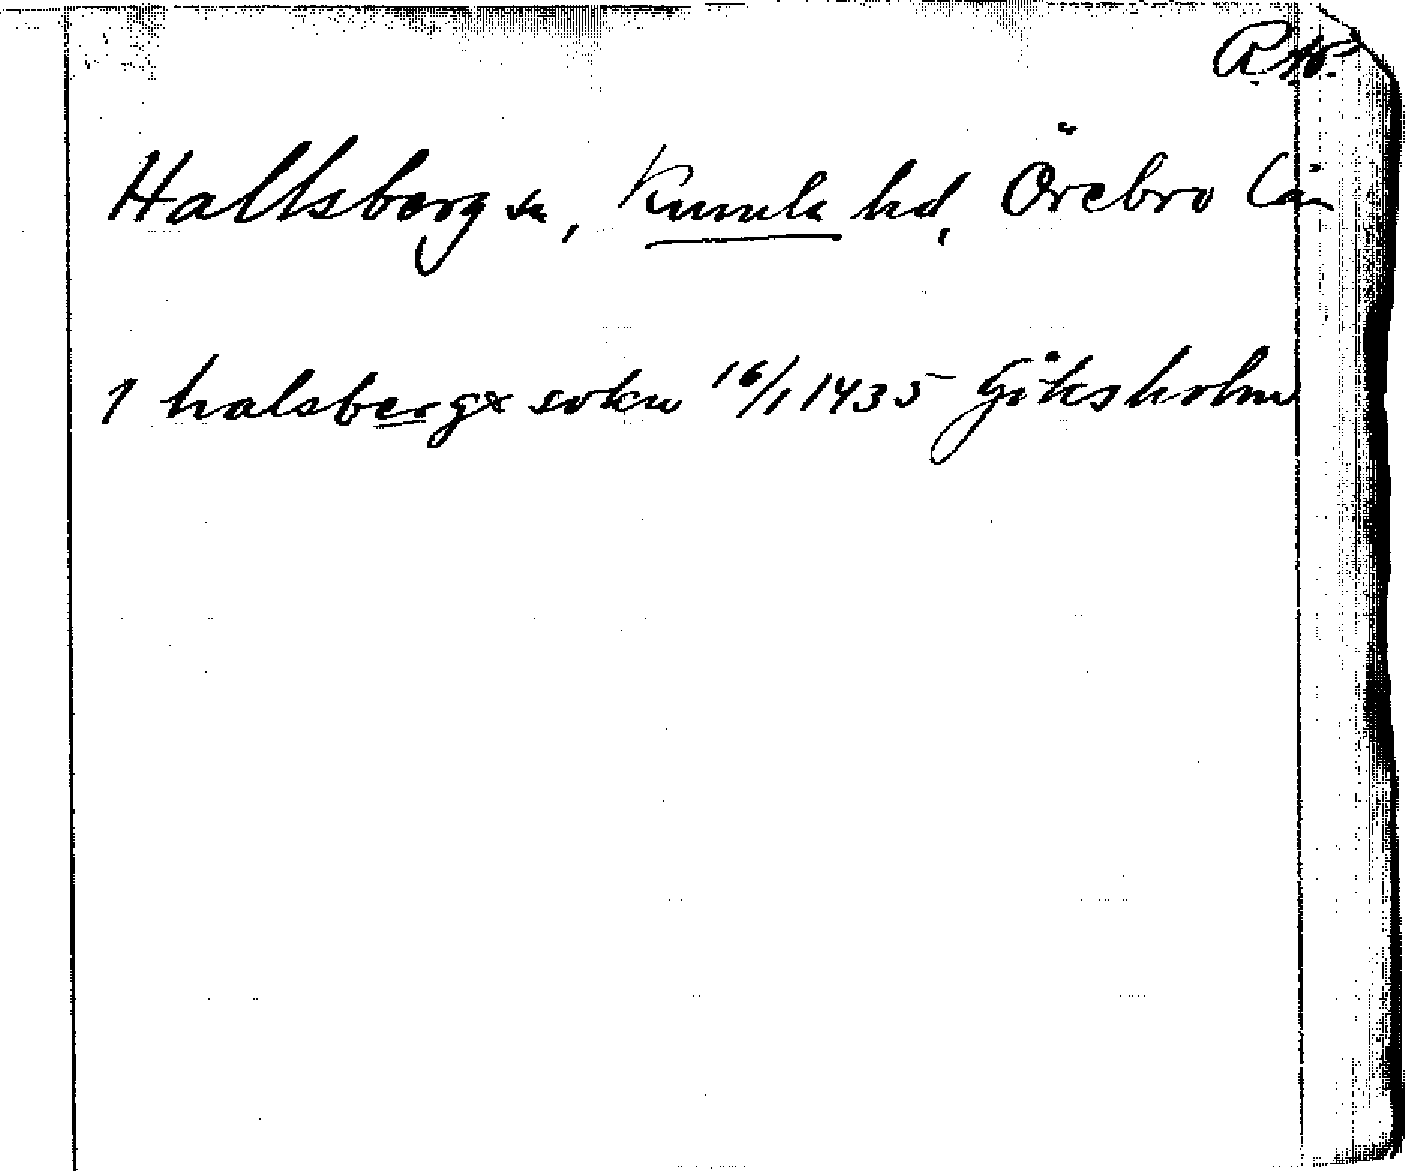 Hallsberg sn, Kumla hd, Örebro län
1 halsbergx sokn 16/1 1435 Göksholm